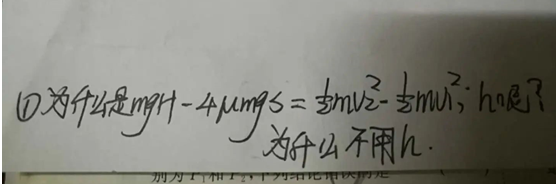 ①为什么是mgH-4μmgs=½mv₂²-½mv₁²;h呢?
为什么不用h.